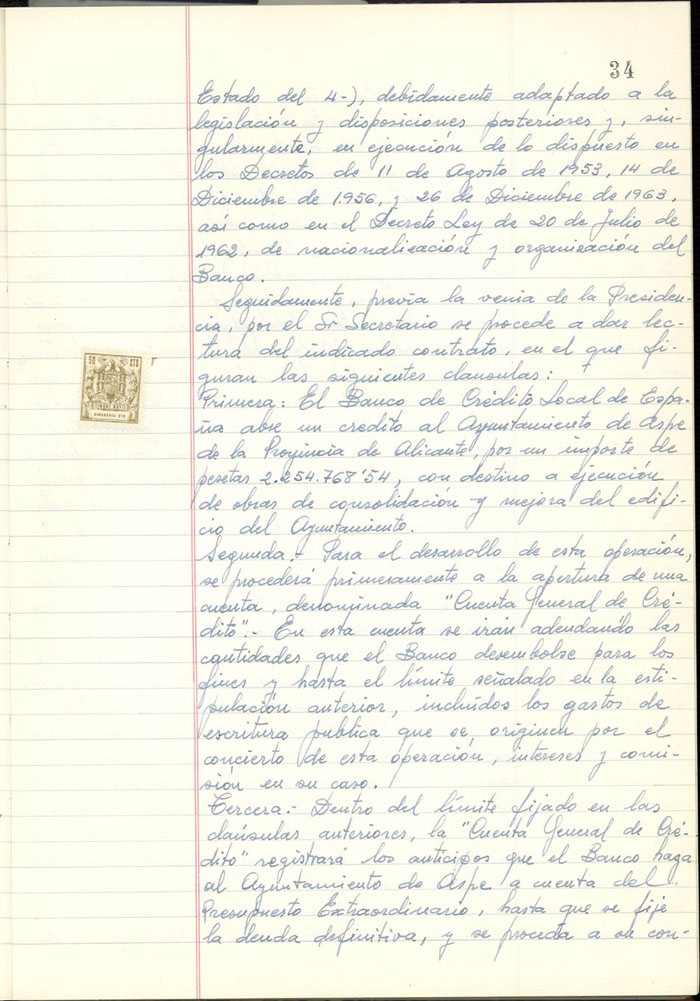 34
Estado del 4-), debidamente adaptado a la
legislación y disposiciones posteriores y, sin-
gularmente, en ejecución de lo dispuesto en
los Decretos de 11 de Agosto de 1953, 14 de
Diciembre de 1.956, y 26 de Diciembre de 1963,
así como en el Decreto Ley de 20 de Julio de
1962, de nacionalización y organización del
Banco.
Seguidamente, previa la venia de la Presiden-
cia, por el Sr Secretario se procede a dar lec-
tura del indicado contrato, en el que fi-
guran las siguientes clausulas:
Primera: El Banco de Crédito Local de Espa-
ña abre un credito al Ayuntamiento de Aspe
de la Provincia de Alicante, por un importe de
pesetas 2.254.768'54, con destino a ejecución
de obras de consolidación y mejora del edifi-
cio del Ayuntamiento.
Segunda.- Para el desarrollo de esta operación,
se procederá primeramente a la apertura de una
cuenta, denominada "Cuenta General de Cré-
dito".- En esta cuenta se irán adeudando las
cantidades que el Banco desembolse para los
fines y hasta el límite señalado en la esti-
pulación anterior, incluídos los gastos de
escritura publica que se originen por el
concierto de esta operación, intereses y comi-
sión en su caso.
Tercera.- Dentro del límite fijado en las
claúsulas anteriores, la "Cuenta General de Cré-
dito" registrará los anticipos que el Banco haga
al Ayuntamiento de Aspe a cuenta del
Presupuesto Extraordinario, hasta que se fije
la deuda definitiva, y se proceda a su con-
50 CTS